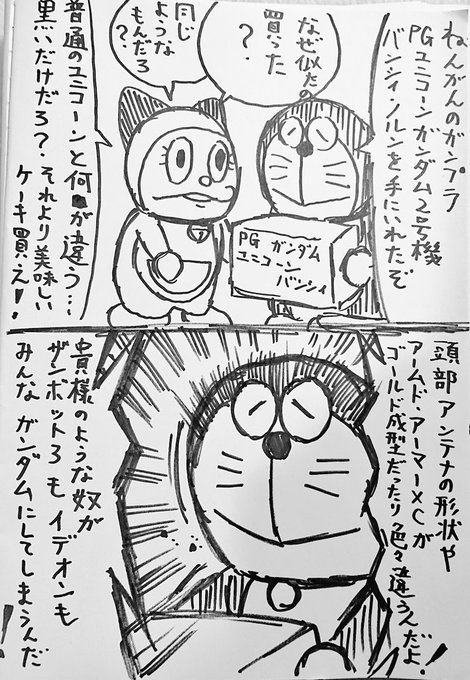 ねんがんのガンプラ
PGユニコーンガンダム2号機
バンシィ・ノルンを手にいれたぞ
なぜ似たの
買った
?
同じ
ような
もんだろ
?
普通のユニコーンと何が違う…
黒いだけだろ?それより美味しい
ケーキ買え!
PG ガンダム
ユニコーン
バンシィ
頭部アンテナの形状や
アームド・アーマーXCが
ゴールド成型だったり色々違うんだよ!
貴様のような奴が
ザンボット3もイデオンも
みんなガンダムにしてしまうんだ
!